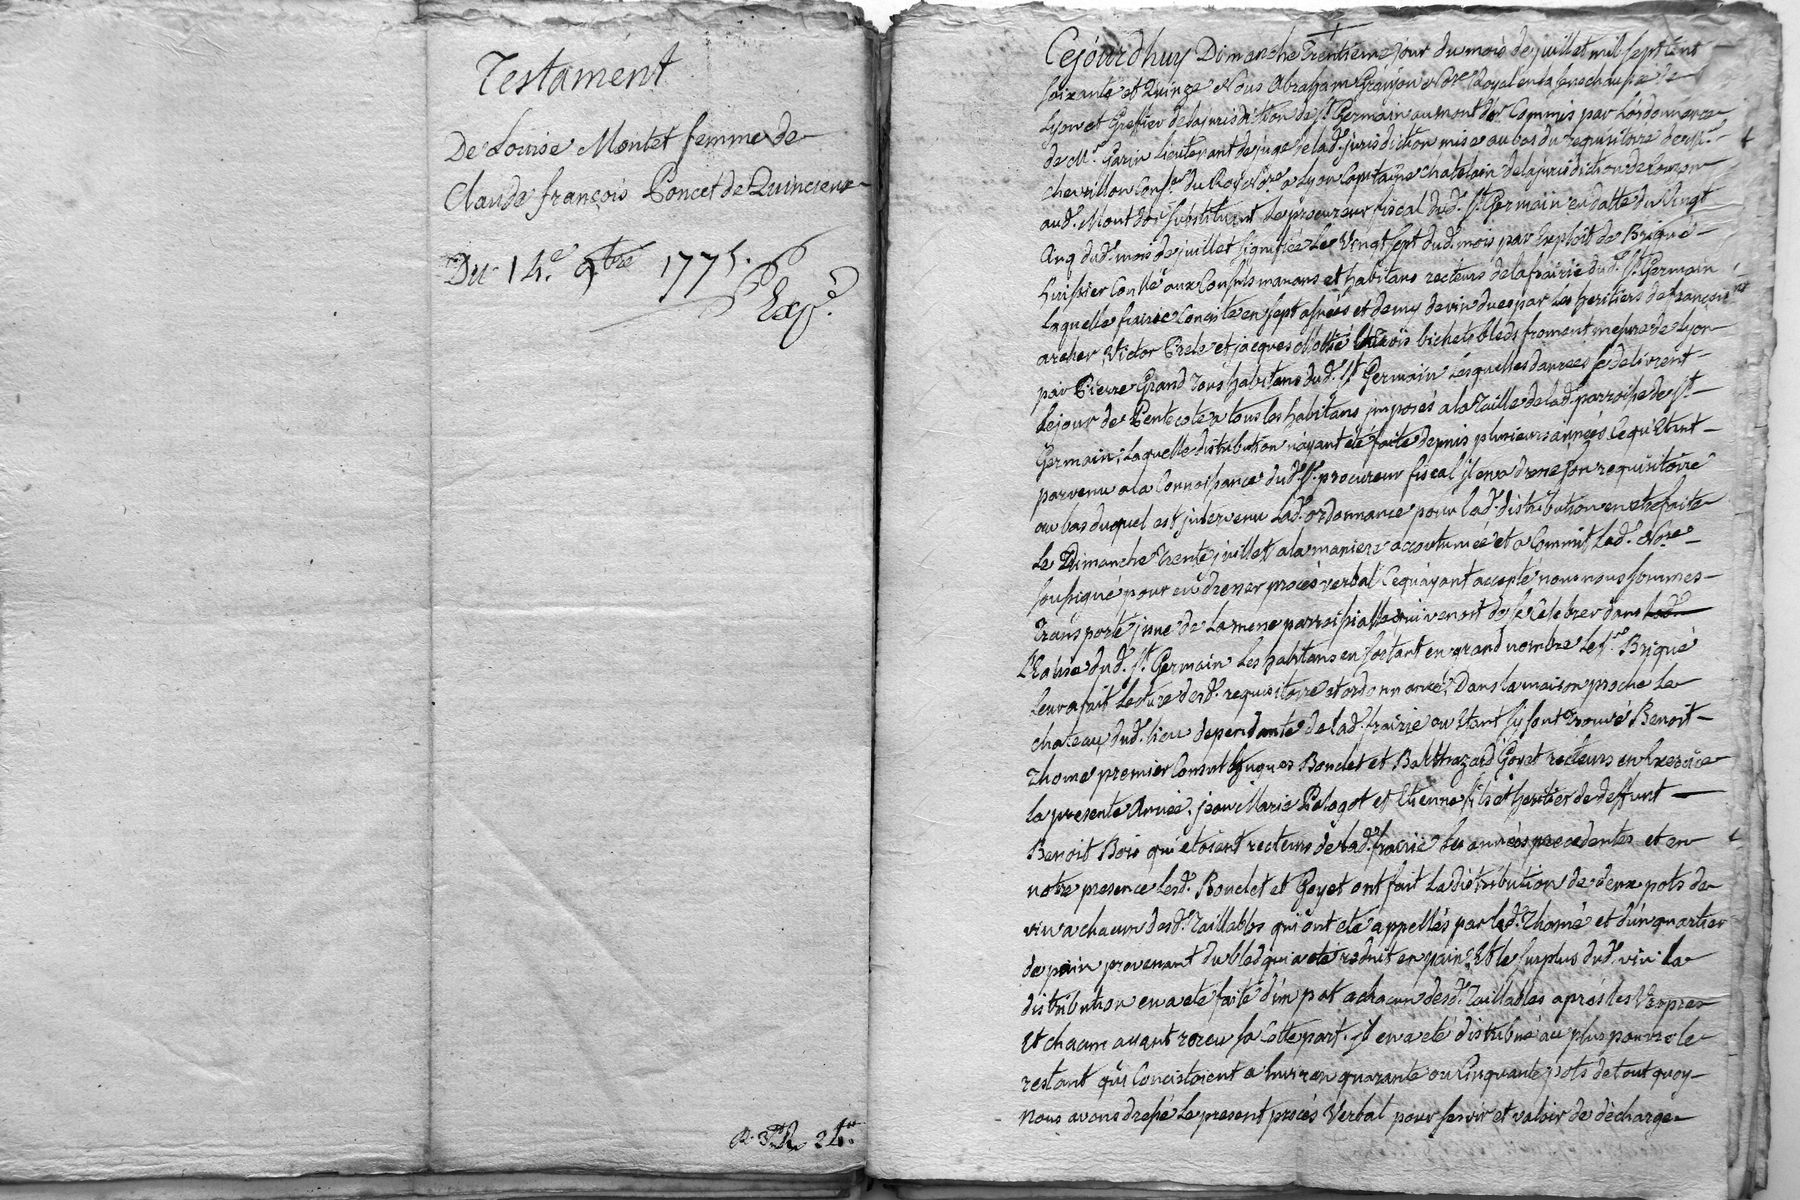 Testament
De Louise Montet femme de
Claude françois Poncet de Quincieux
Du 14.e 9bre 1775.
Exp.é
Cejourdhuy Dimanche trentieme jour du mois de juillet mil sept cent
soixante et Quinze Nous Abraham Nore Royal en la senechaussée de
Lyon et Greffier de la jurisdiction de St. Germain au mont dor Commis par Lordonnance
de Mr. Garin Lieutenant de juge de lad. jurisdiction mise au bas du requisitoire de Mr.
chevillon Consr. du Roy Nore a Lyon Capitaine chatelain de la jurisdiction de Couzon
aud. Mont dor substituant Le procureur fiscal dud. St. Germain en datte du Vingt
cinq dud. mois de juillet signifiée Le Vingt sept dud. mois par Exploit de Briqué
huissier aux Consuls manans et habitans recteurs de la frairie dud. St. Germain
Laquelle frairie Conciste en sept asnées et demy de vin dues par Les heritiers de françois
archer, Victor et jacques trois bichets bleds froment mesure de Lyon
par Pierre Grand tous habitans dud. St. Germain Lesquelles danrées se delivrent
Le jour de Pentecote a tous les habitans imposés a la taille de lad. parroisse de St.
Germain, Laquelle distribution n'ayant été faite depuis plusieurs années Cequ'Etant
parvenu a la Connoissance dud. Sr. procureur fiscal il en a dressé son requisitoire
au bas duquel est intervenu Lad. ordonnance pour lad. distribution en etre faite
Le Dimanche trente juillet a la maniere accoutumée et a Commit Led. Nore
soussigné pour en dresser procès verbal Cequ'ayant accepté nous nous sommes
transporté jssue de La messe parroissialle qui venoit de se Celebrer dans Lad.
L'Eglise dud. St. Germain Les habitans en sortant en grand nombre Le Sr. Briqué
Leur a fait Lecture desd. requisitoire et ordonnance, Dans la maison proche Le
chateau dud. lieu dependante de lad. frairie ou Etant s'y sont trouvé Benoit
Thome premier Consul hugues Bondet et Balthazard Goyet recteurs en Exercice
La presente Année, jean Marie Pelagot et Etienne fils et heritier de deffunt
Benoit Bois qui étoient recteurs de lad. frairie Les années precedentes et en
notre presence Lesd. Bondet et Goyet ont fait La distribution de deux pots de
vin a chacun desd. taillables qui ont eté appellés par led. Thomé et d'un quartier
de pain provenant du bled qui a eté reduit en pain, Et le surplus dud. vin La
distribution en a eté faite d'un pot a chacun desd. taillables après les Vespres
Et chacun ayant receu sa Cotte part. il en a eté distribué au plus pauvre le
restant qui Concistoient a Environ quarante ou Cinquante pots de tout quoy
Nous avons dressé Le present procès Verbal pour servir et valoir de décharge